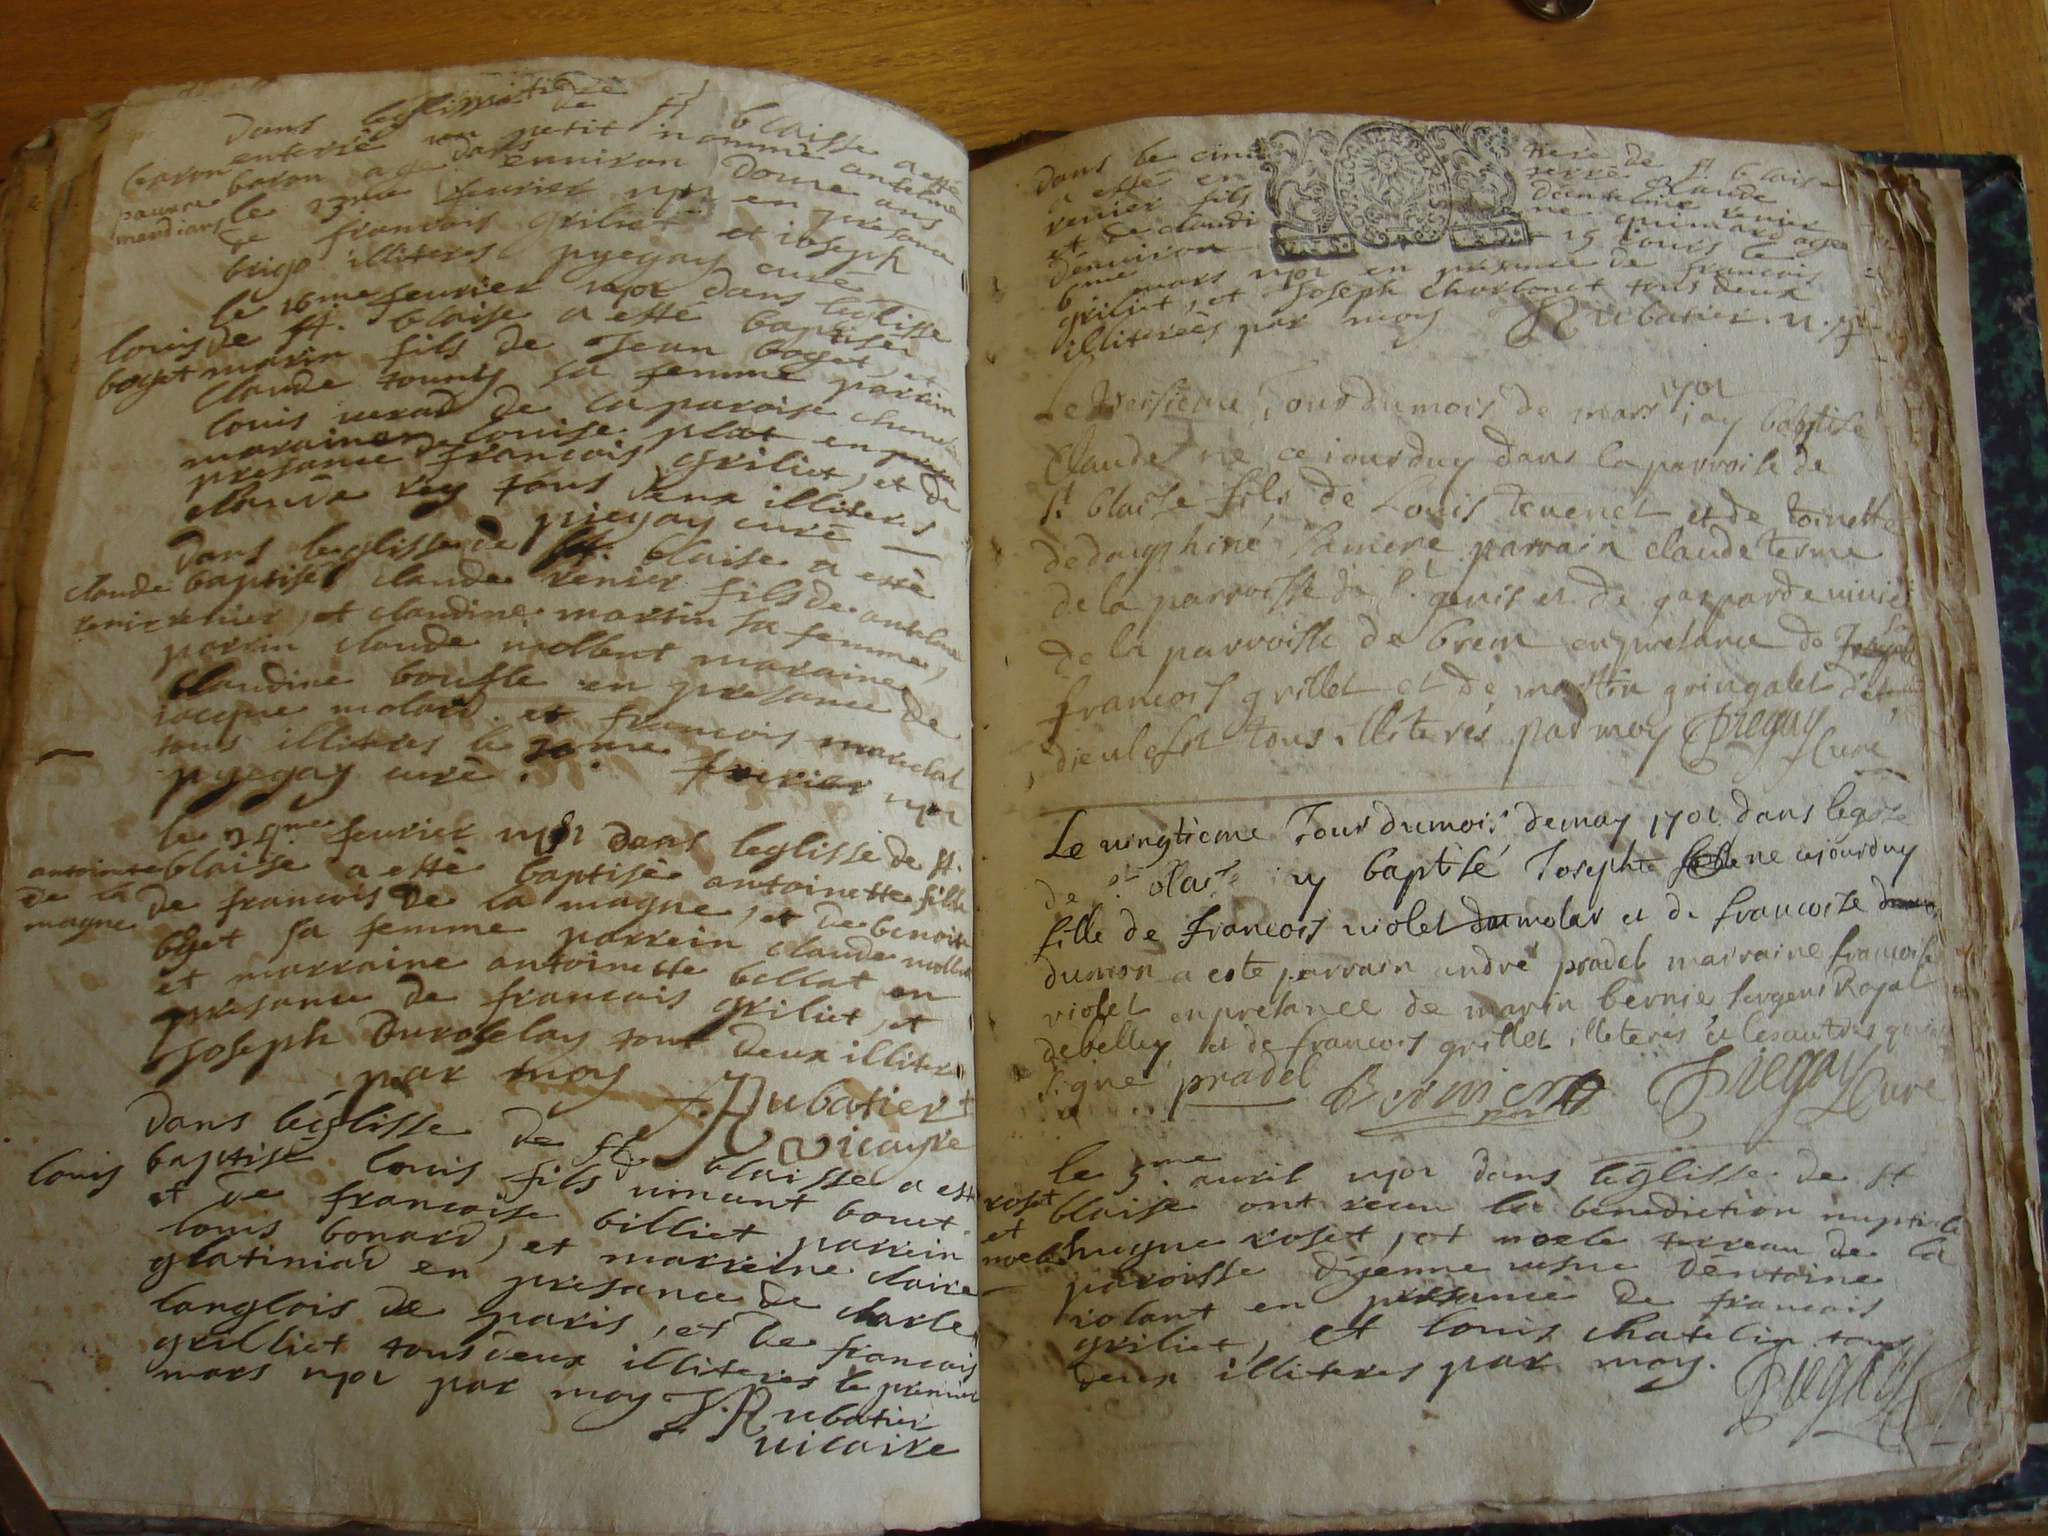 dans leglise de st blaisse a esté
enterré un petit nommé antelme
baron age denviron douze ans
baron
pauvre
mandians
le 23me feurier 1701 en presance
de francois griliet et ioseph
brigo illiteres pyegay curé
le 16me feurier 1701 dans leglisse
de st. blaise a esté baptisé
louis
boget
marin fils de Jean boget, et
Claude tourny sa femme parrin
louis verad de la paroise
maraine louise plat en
presance francois griliet, et de
claude rey tous deux illiteres
piegay curé
dans leglisse de st. blaise a esté
claude
renier
baptisé claude renier fils de antelme
renier, et claudine martin sa femme,
parrin claude mollent maraine
claudine boufle en presance de
iacque molard et francois marechal
tous illitres le 20me feurier 1701
pyegay curé.
le 24me feurier 1701 dans leglisse de st.
antoinette
de la
magne
blaise a esté baptisée antoinette fille
de francois de la magne, et de benoite
boget sa femme parrein claude mollent
et marraine antoinette billat en
presance de francois griliet, et
Joseph duroselay tout deux illiteres
par moy J. Rubatier
vicayre
dans léglisse de st blaisse a esté
louis
baptisé louis fils vincent bouet
et de francoise billiet parrein
louis bonard, et marreine claire
glatiniad en presance de charle
langlois de paris, et de francois
grilliet tous deux illiteres le premier
mars 1701 par moy J. Rubatier
vicaire
dans le cimetiere de st blaise
a esté enterré claude
renier fils dantelme renier
et de claudine guimard age
denviron 15 iours le
6me mars 1701 en presance de francois
griliet, et Joseph charlonet tous deux
illitereés par moy J Rubatier. v.
Le treisieme Jour du mois de mars 1701 i ay baptise
Claude né ce iourduy dans la parroise de
st blaise fils de Louis tevenet et de toinette
de dauphiné sa mere parrain claude terme
de la parroisse de st genis et de gasparde
de la parroisse de brem en presance de
francois grillet et de martin gringalet
dieulefit tous illiterés par moy Piegay
Curé
Le vingtieme Jour du mois de may 1701 dans legsle
de st blaise iay baptisé Josephte née ce jourduy
fille de francois violet du molar et de francoise
dumon a esté parrain andre pradel marraine francoise
violet en presance de marin bernier sergent Royal
de belley et de francois grillet illeteres et les autres
signé pradel Bernier Piegay
Curé
le 5me. avril 1701 dans léglisse de st
roset
et
noele
blaise ont receu la benediction nuptiale
hugue roset, et noele terreau de la
paroisse dyenne vefve dentoine
rolant en presance de francois
griliet, et louis chatelin tous
deux illiteres par moy.
Piegay